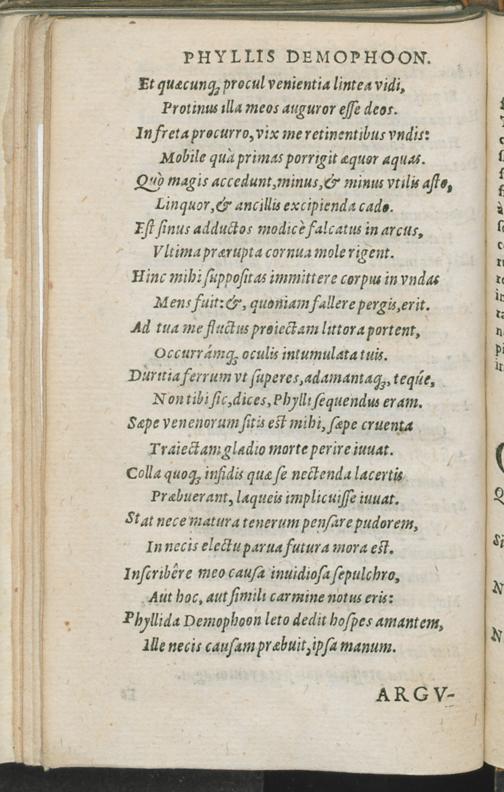 PHYLLIS DEMOPHOON.
Et quæcunq́; procul venientia lintea vidi,
Protinus illa meos auguror eſſe deos.
In freta procurro, vix me retinentibus vndis:
Mobile quà primas porrigit æquor aquas.
Quò magis accedunt, minus, & minus vtilis aſto,
Linquor, & ancillis excipienda cado.
Eſt ſinus adductos modicè falcatus in arcus,
Vltima prærupta cornua mole rigent.
Hinc mihi ſuppoſitas immittere corpus in vndas
Mens fuit: &, quoniam fallere pergis, erit.
Ad tua me fluctus proiectam littora portent,
Occurrámq; oculis intumulata tuis.
Duritia ferrum vt ſuperes, adamantaq;, teq́ue,
Non tibi ſic, dices, Phylli ſequendus eram.
Sæpe venenorum ſitis eſt mihi, ſæpe cruenta
Traiectam gladio morte perire iuuat.
Colla quoq; infidis quæ ſe nectenda lacertis
Præbuerant, laqueis implicuiſſe iuuat.
Stat nece matura tenerum penſare pudorem,
In necis electu parua futura mora eſt.
Inſcribêre meo cauſa inuidioſa ſepulchro,
Aut hoc, aut ſimili carmine notus eris:
Phyllida Demophoon leto dedit hoſpes amantem,
Ille necis cauſam præbuit, ipſa manum.
ARGV-